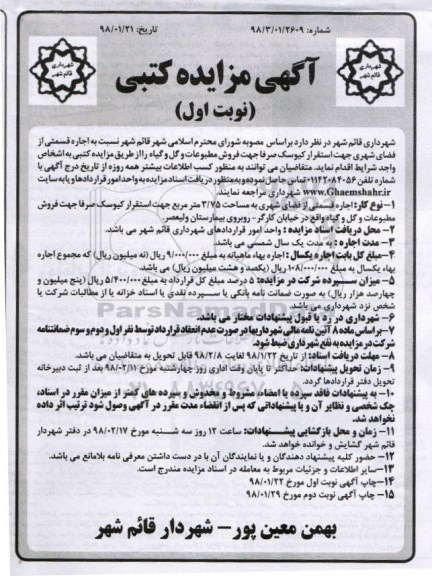 شماره: ۹۸/۳/۰۱/۲۶۰۹
تاریخ: ۹۸/۰۱/۲۱
شهرداری
قائم شهر
شهرداری
قائم شهر
آگهی مزایده کتبی
(نوبت اول)
شهرداری قائم شهر در نظر دارد براساس مصوبه شورای محترم اسلامی شهر قائم شهر نسبت به اجاره قسمتی از
فضای شهری جهت استقرار کیوسک صرفا جهت فروش مطبوعات و گل و گیاه را از طریق مزایده کتبی به اشخاص
واجد شرایط اقدام نماید. متقاضیان می توانند به منظور کسب اطلاعات بیشتر همه روزه از تاریخ درج آگهی با
شماره تلفن ۰۱۱۴۲۰۸۴۰۵۶ تماس حاصل نموده و به منظور دریافت اسناد مزایده به واحد امور قراردادها و یا به سایت
www.Ghaemshahr.ir شهرداری مراجعه نمایند.
۱- نوع کار: اجاره قسمتی از فضای شهری به مساحت ۳/۷۵ متر مربع جهت استقرار کیوسک صرفا جهت فروش
مطبوعات و گل و گیاه واقع در خیابان کارگر- روبروی بیمارستان ولیعصر.
۲- محل دریافت اسناد مزایده : واحد امور قراردادهای شهرداری قائم شهر می باشد.
۳- مدت اجاره : به مدت یک سال شمسی می باشد.
۴- مبلغ کل بابت اجاره یکسال : اجاره بهاء ماهیانه به مبلغ ۹/۰۰۰/۰۰۰ ریال (نه میلیون ریال) که مجموع اجاره
بهاء یکسال به مبلغ ۱۰۸/۰۰۰/۰۰۰ ریال (یکصد و هشت میلیون ریال) می باشد.
۵- میزان سپرده شرکت در مزایده: ۵ درصد مبلغ کل قرارداد به مبلغ ۵/۴۰۰/۰۰۰ ریال (پنج میلیون و
چهارصد هزار ریال) به صورت ضمانت نامه بانکی یا سپرده نقدی یا اسناد خزانه یا از مطالبات شرکت یا
شخص نزد شهرداری می باشد.
۶- شهرداری در رد یا قبول پیشنهادات مختار می باشد.
۷- براساس ماده ۸ آئین نامه مالی شهرداریها در صورت عدم انعقاد قرارداد توسط نفر اول و دوم و سوم ضمانتنامه
شرکت در مزایده به نفع شهرداری ضبط شود.
۸- مهلت دریافت اسناد: از تاریخ ۹۸/۱/۲۲ لغایت ۹۸/۲/۸ قابل تحویل به متقاضیان می باشد.
۹- زمان تحویل پیشنهادات: حداکثر تا پایان وقت اداری روز چهارشنبه مورخ ۹۸/۰۲/۱۱ بعد از ثبت دبیرخانه
تحویل دفتر قراردادها گردد.
۱۰- به پیشنهادات فاقد سپرده یا امضاء، مشروط و مخدوش و سپرده های کمتر از میزان مقرر در اسناد،
چک شخصی و نظایر آن و یا پیشنهاداتی که پس از انقضاء مدت مقرر در آگهی وصول شود ترتیب اثر داده
نخواهد شد.
۱۱- زمان و محل بازگشایی پیشنهادات: ساعت ۱۲ روز سه شنبه مورخ ۹۸/۰۲/۱۷ در دفتر شهردار
قائم شهر گشایش و خوانده خواهد شد.
۱۲- حضور کلیه پیشنهاد دهندگان و یا نمایندگان آن با در دست داشتن معرفی نامه بلامانع می باشد.
۱۳- سایر اطلاعات و جزئیات مربوط به معامله در اسناد مزایده مندرج است.
۱۴- چاپ آگهی نوبت اول مورخ ۹۸/۰۱/۲۲
۱۵- چاپ آگهی نوبت دوم مورخ ۹۸/۰۱/۲۹
بهمن معین پور- شهردار قائم شهر